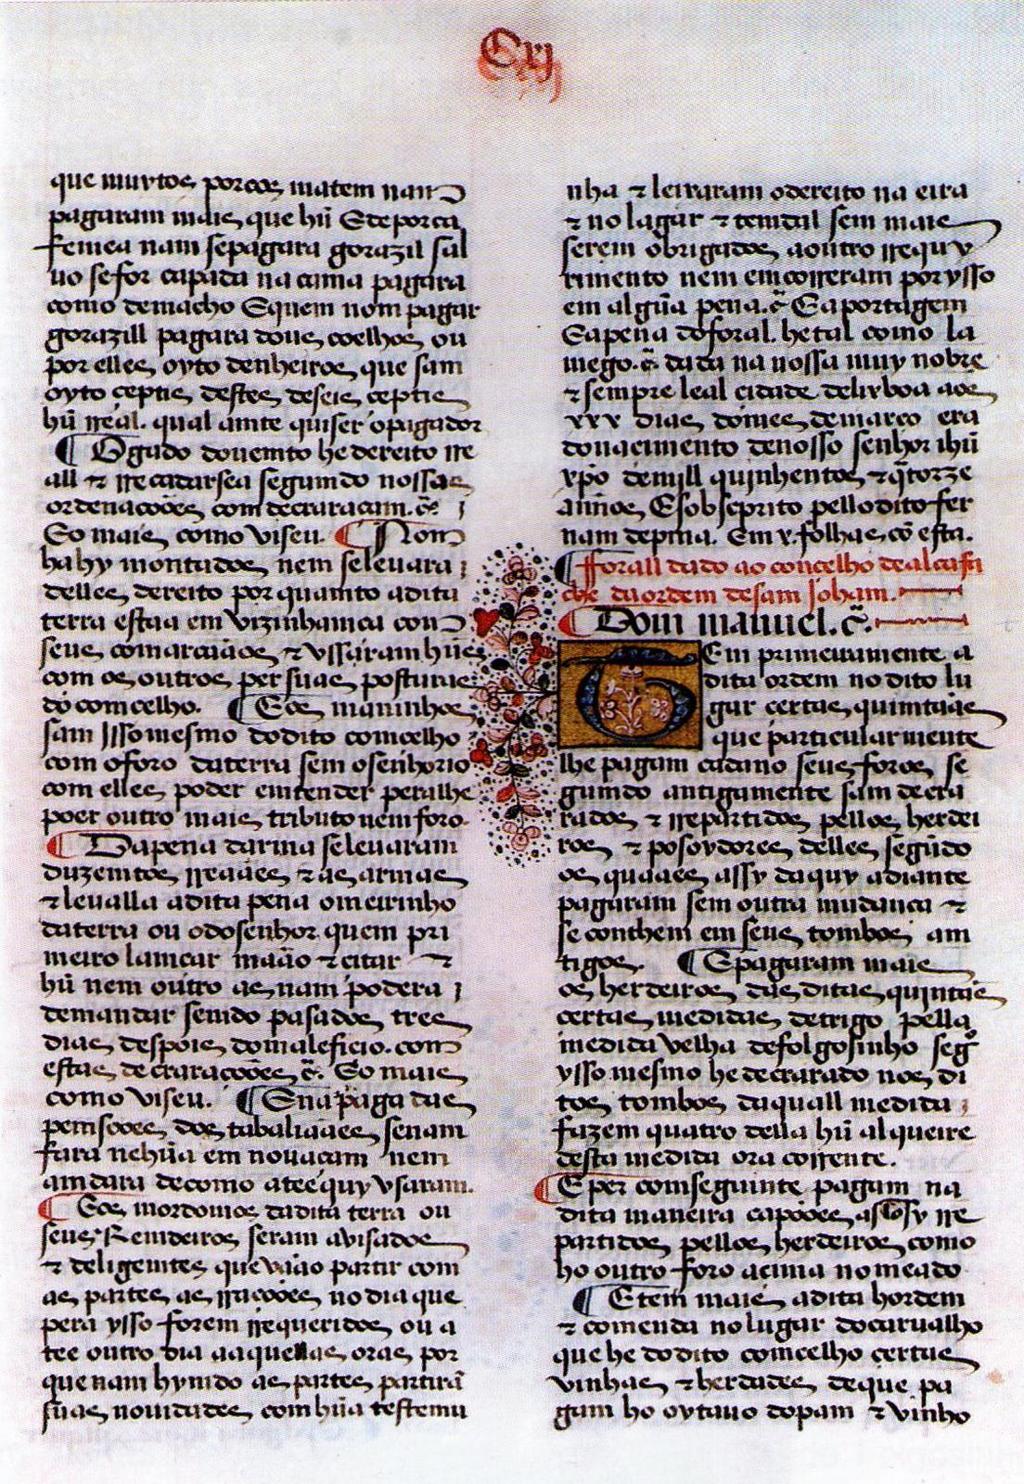 Cxj
que muytos porcos matem nam
pagaram mais que hũ E de porca
femea nam se pagara gorazil sal
uo se for capada na cama pagara
como de macho E quem nom pagar
gorazill pagara dous coelhos ou
por elles oyto denheiros que sam
oyto ceptis destes de seis ceptis
hũ rreal. qual amte quiser o pagador
¶ O gado do uemto he dereito rre
all ⁊ rrecadarsea segumdo nossas
ordenaçoões com decraraçam. c̃
So mais como viseu. ¶ Nom
ha hy montados nem se leuara
delles dereito por quamto a dita
terra estaa em vizinhamca com
seus comarcãaos ⁊ vssaram hũus
com os outros per suas posturas
do comcelho. ¶ E os maninhos
sam jsso mesmo do dito comcelho
com o foro da terra sem o senhorio
com elles poder emtender pera lhe
poer outro mais tributo nem foro.
¶ Da pena darma se leuaram
duzemtos rreaaes ⁊ as armas
⁊ leualla a dita pena o meirinho
da terra ou o do senhor quem pri
meiro lamcar maão ⁊ citar ⁊
hũ nem outro as nam podera
demandar semdo pasados tres
dias despois do maleficio. com
estas decraraçoões c̃. So mais
como viseu. ¶ E na paga das
pemsoões dos tabaliaães se nam
fara nehũa em nouaçam nem
amdara de como atee quy vsaram.
¶ E os mordomos da dita terra ou
seus Remdeiros seram avisados
⁊ deligemtes que vaão partir com
as partes as rraçoões no dia que
pera ysso forem rrequeridos ou a
tee outro dia aaquellas oras por
que nam hymdo as partes partirã
suas nouidades com hũa testemu
nha ⁊ leixaram o dereito na eira
⁊ no lagar ⁊ temdal sem mais
serem obrigados a outro rrequy
rimento nem emcorreram por ysso
em algũa pena. c̃ E a portagem
E a pena do foral. he tal como la
mego. c̃ dada na nossa muy nobre
⁊ sempre leal cidade de lixboa aos
xxx dias do mes de março era
do nacimento de nosso senhor ihũ
xpõ de mill quinhentos ⁊ q̃torze
annos, E sob scprito pello dito fer
nam de pina. Em x. folhas cõ esta.
¶ fforall dado ao concelho de alcafa
che da ordem de sam Joham.
¶ Dom manuel. c̃.
Tem primeiramente a
dita ordem no dito lu
gar certas quimtaãs
que particularmente
lhe pagam cadano seus foros se
gumdo antigamente sam decra
rados ⁊ rrepartidos pellos herdei
ros ⁊ posoydores delles segũdo
os quaaes assy daquy adiante
pagaram sem outra mudança ⁊
se conthem em seus tombos am
tigos. ¶ E pagaram mais
os herdeiros das ditas quintãs
certas medidas de trigo pella
medida velha de folgosinho seg̃
ysso mesmo he decrarado nos di
tos tombos da quall medida
fazem quatro della hũ alqueire
desta medida ora corrente.
¶ E per comseguinte pagam na
dita maneira capoões assy rre
partidos pellos herdeiros como
ho outro foro acima nomeado
¶ E tem mais a dita hordem
⁊ comenda no lugar do carualho
que he do dito comcelho certas
vinhas ⁊ herdades de que pa
gam ho oytauo do pam ⁊ vinho